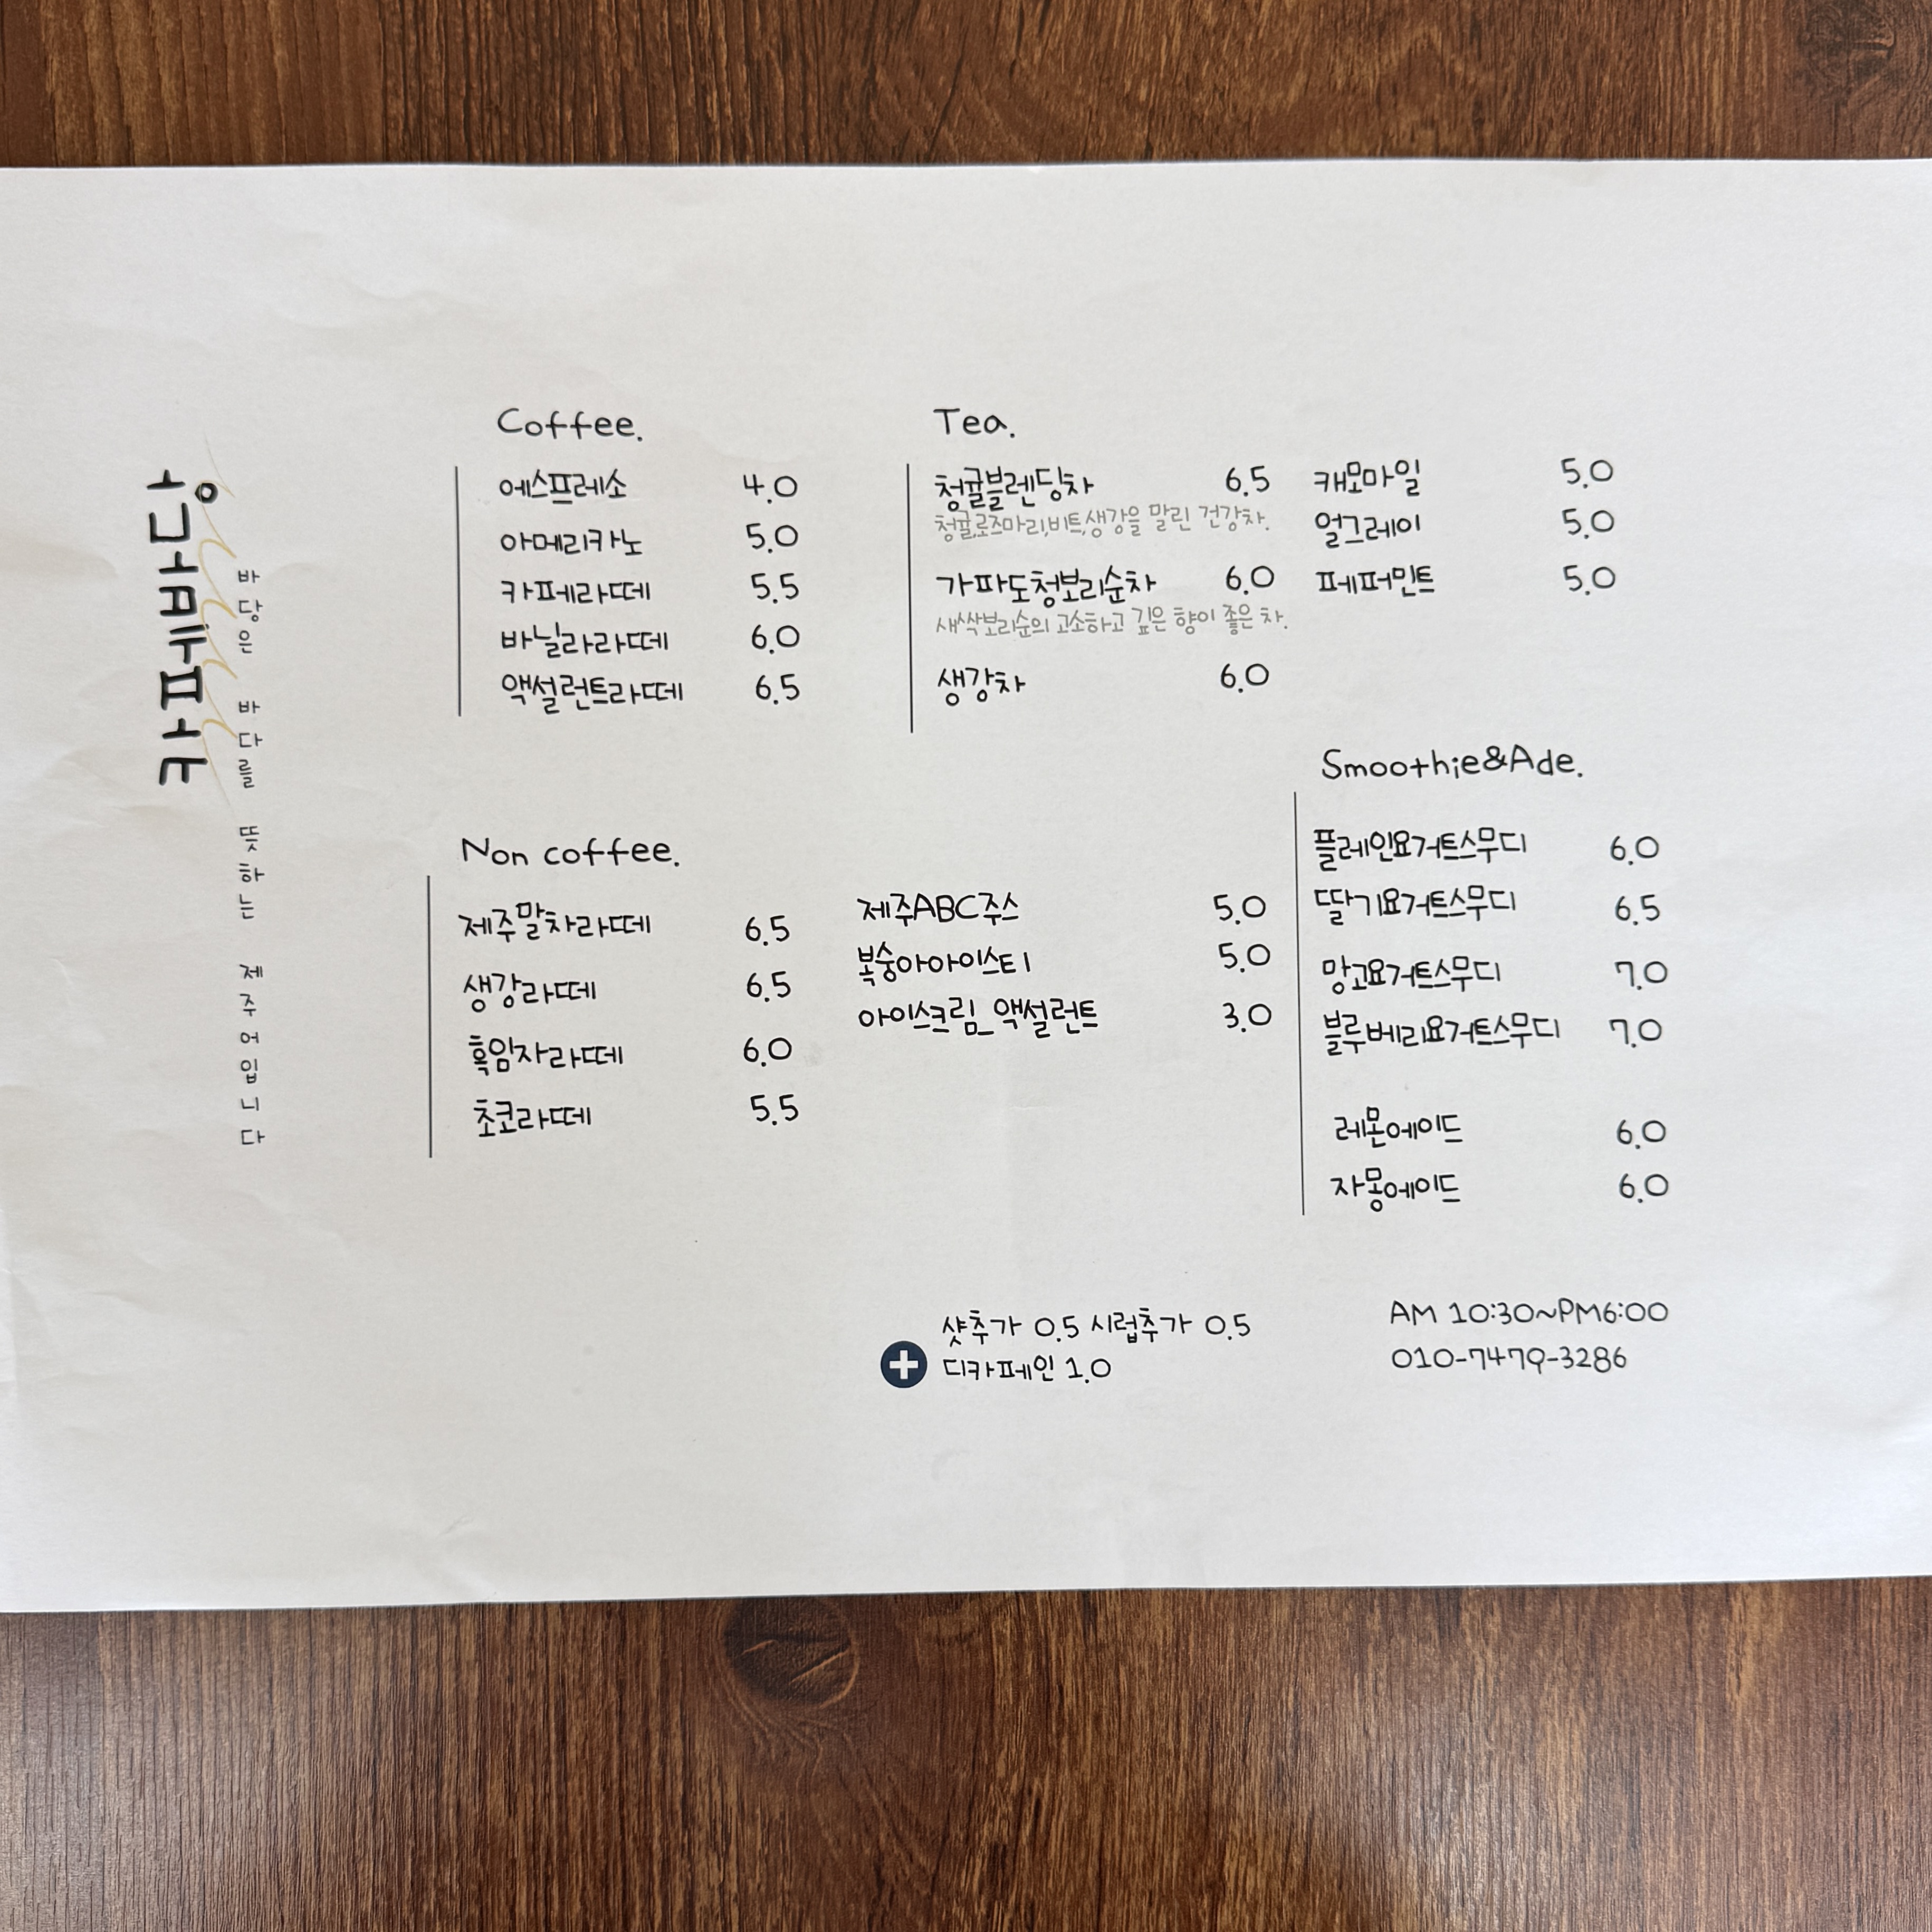 바당은 바다를 뜻하는 제주어입니다
Coffee.
에스프레소 4.0
아메리카노 5.0
카페라떼 5.5
바닐라라떼 6.0
액설런트라떼 6.5
Tea.
청귤블렌딩차 6.5
청귤,로즈마리,비트,생강을 말린 건강차.
가파도청보리순차 6.0
새싹보리순의 고소하고 깊은 향이 좋은 차.
생강차 6.0
캐모마일 5.0
얼그레이 5.0
페퍼민트 5.0
Non coffee.
제주말차라떼 6.5
생강라떼 6.5
흑임자라떼 6.0
초코라떼 5.5
제주ABC주스 5.0
복숭아아이스티 5.0
아이스크림_액설런트 3.0
Smoothie&Ade.
플레인요거트스무디 6.0
딸기요거트스무디 6.5
망고요거트스무디 7.0
블루베리요거트스무디 7.0
레몬에이드 6.0
자몽에이드 6.0
샷추가 0.5 시럽추가 0.5
디카페인 1.0
AM 10:30~PM6:00
010-7479-3286